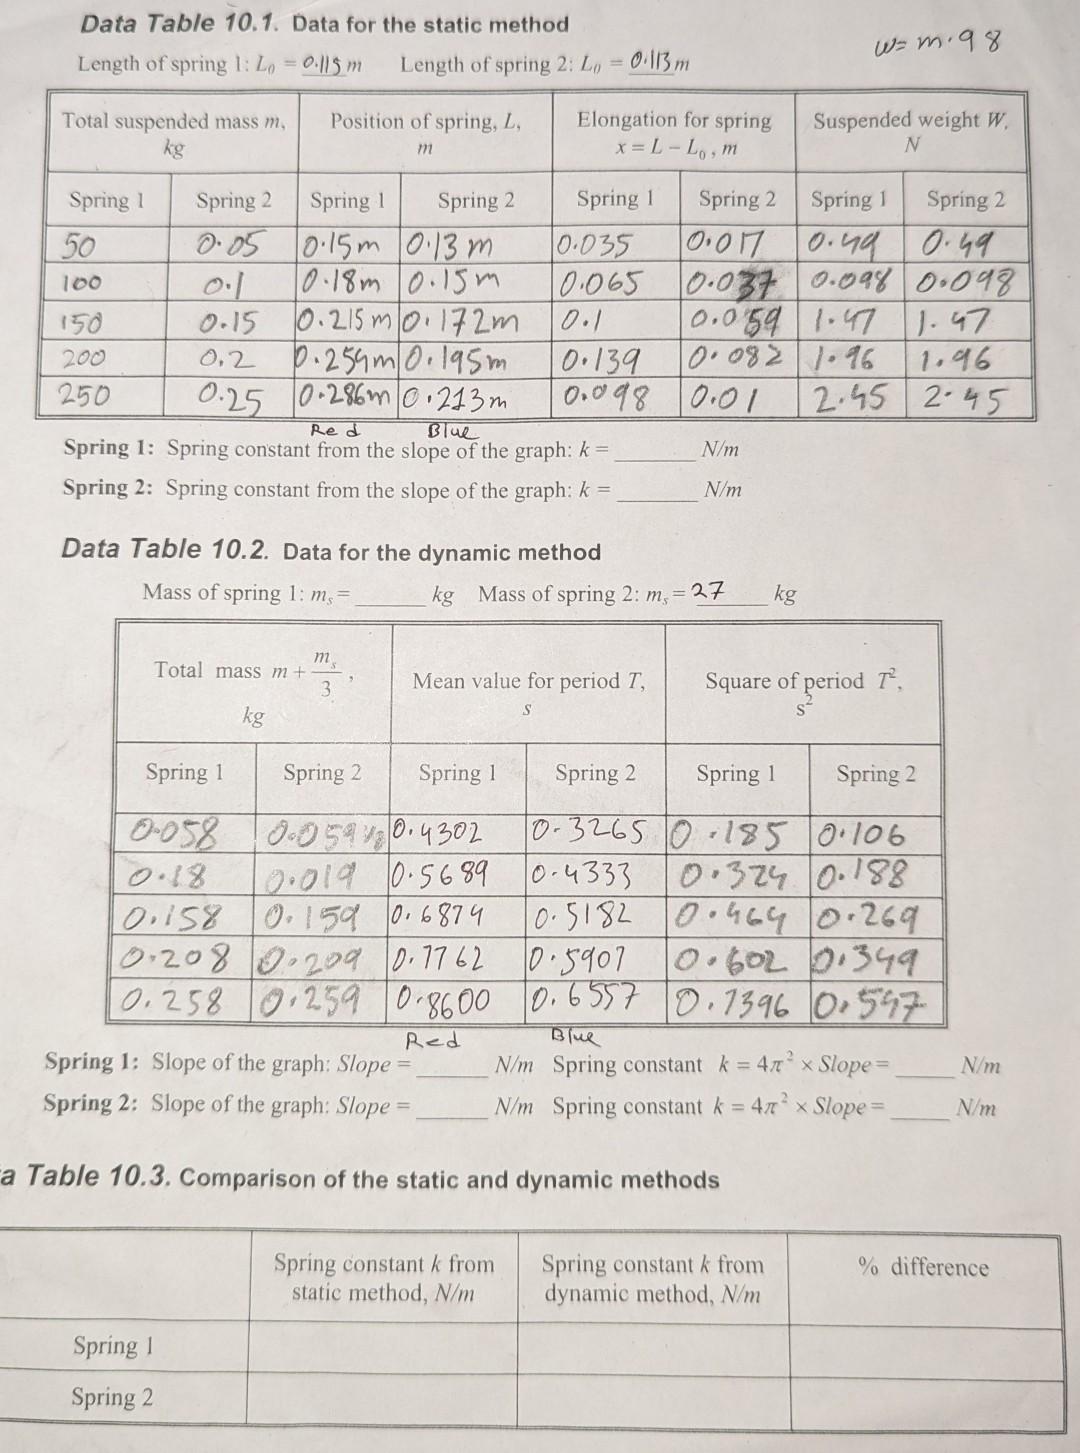 Data Table 10.1. Data for the static method
w= m·98
Length of spring 1: L₀ = 0.115 m Length of spring 2: L₀ = 0.113 m
Total suspended mass m, kg Position of spring, L, m Elongation for spring x = L – L₀, m Suspended weight W, N
Spring 1 Spring 2 Spring 1 Spring 2 Spring 1 Spring 2 Spring 1 Spring 2
50 0.05 0.15m 0.13 m 0.035 0.017 0.49 0.49
100 0.1 0.18m 0.15m 0.065 0.037 0.098 0.098
150 0.15 0.215 m 0.172m 0.1 0.059 1.47 1.47
200 0.2 0.254m 0.195m 0.139 0.082 1.96 1.96
250 0.25 0.286m 0.213m 0.098 0.01 2.45 2.45
Red Blue
Spring 1: Spring constant from the slope of the graph: k = ______ N/m
Spring 2: Spring constant from the slope of the graph: k = ______ N/m
Data Table 10.2. Data for the dynamic method
Mass of spring 1: mₛ = ______ kg Mass of spring 2: mₛ = 27 kg
Total mass m + mₛ/3, kg Mean value for period T, s Square of period T², s²
Spring 1 Spring 2 Spring 1 Spring 2 Spring 1 Spring 2
0.058 0.059 0.4302 0.3265 0.185 0.106
0.18 0.019 0.5689 0.4333 0.324 0.188
0.158 0.159 0.6874 0.5182 0.464 0.269
0.208 0.209 0.7762 0.5907 0.602 0.349
0.258 0.259 0.8600 0.6557 0.7396 0.547
Red Blue
Spring 1: Slope of the graph: Slope = ______ N/m Spring constant k = 4π² × Slope = ______ N/m
Spring 2: Slope of the graph: Slope = ______ N/m Spring constant k = 4π² × Slope = ______ N/m
a Table 10.3. Comparison of the static and dynamic methods
Spring constant k from static method, N/m Spring constant k from dynamic method, N/m % difference
Spring 1
Spring 2